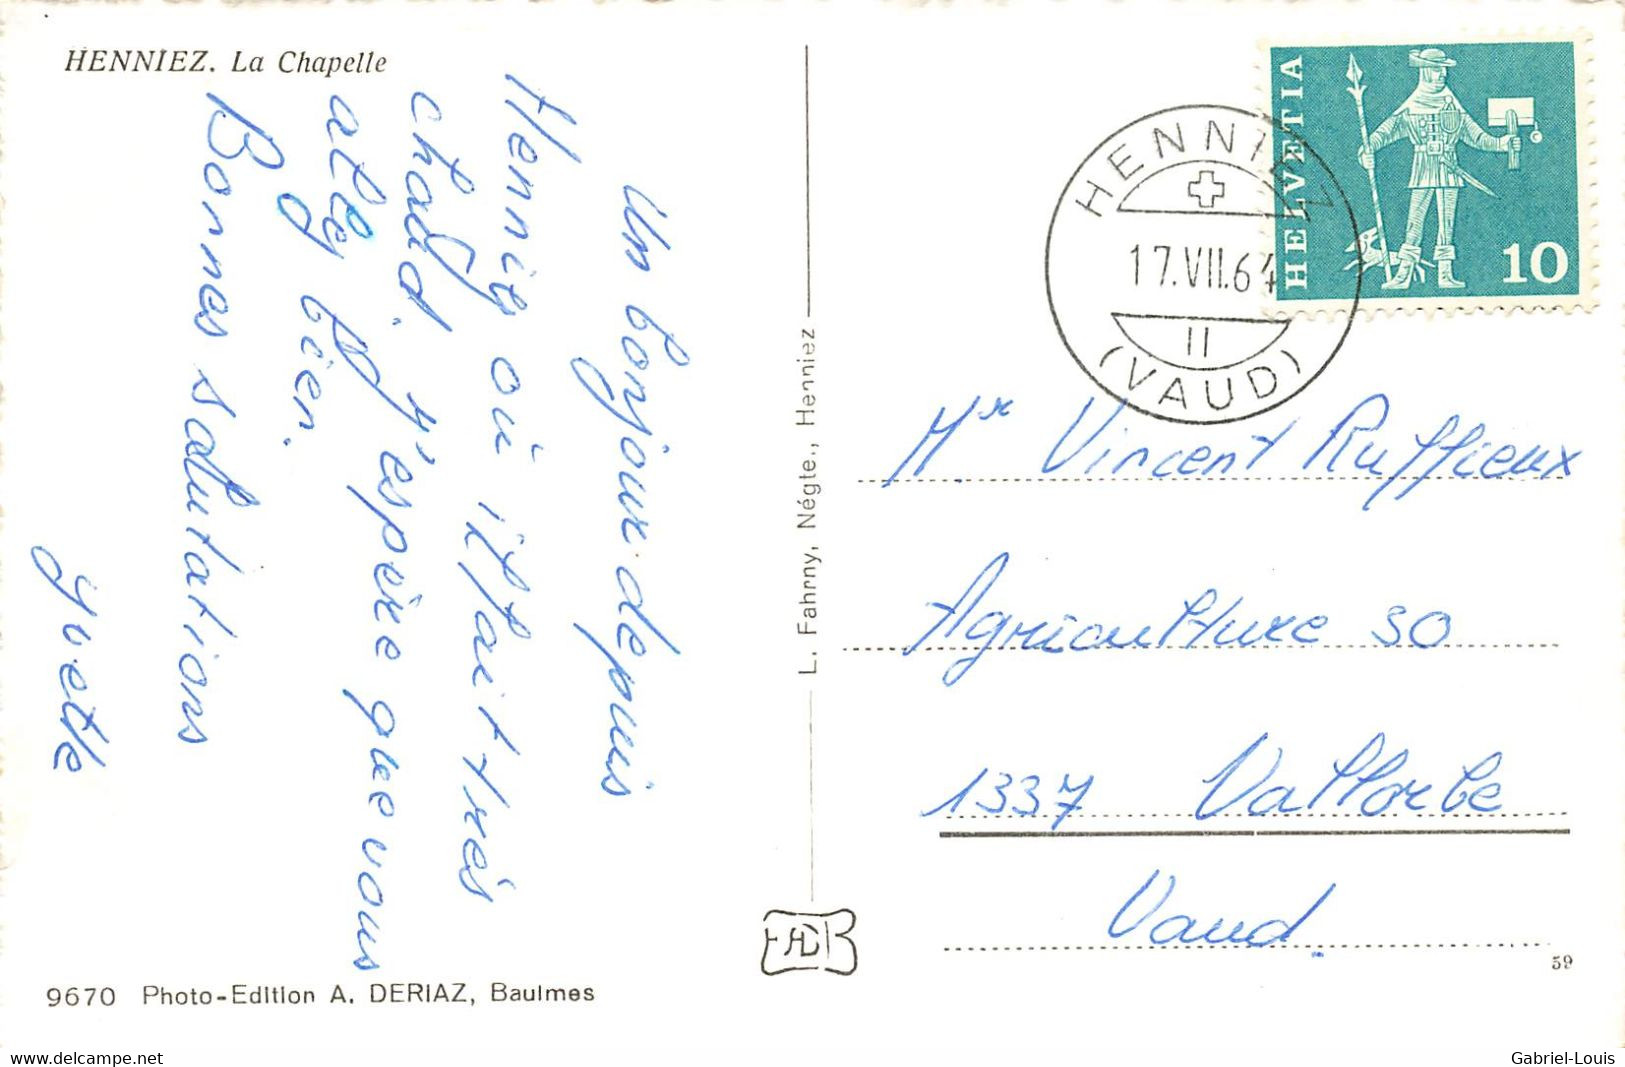 HENNIEZ. La Chapelle
Un bonjour depuis
Henniez où il fait très
chaud. J'espère que vous
allez bien.
Bonnes salutations
Yvette
9670 Photo-Edition A. DERIAZ, Baulmes
L. Fahrny, Négte., Henniez
HELVETIA
10
HENNIEZ
17.VII.64
II
(VAUD)
Mr Vincent Ruffieux
Agriculture 50
1337 Vallorbe
Vaud
59
www.delcampe.net
Gabriel-Louis